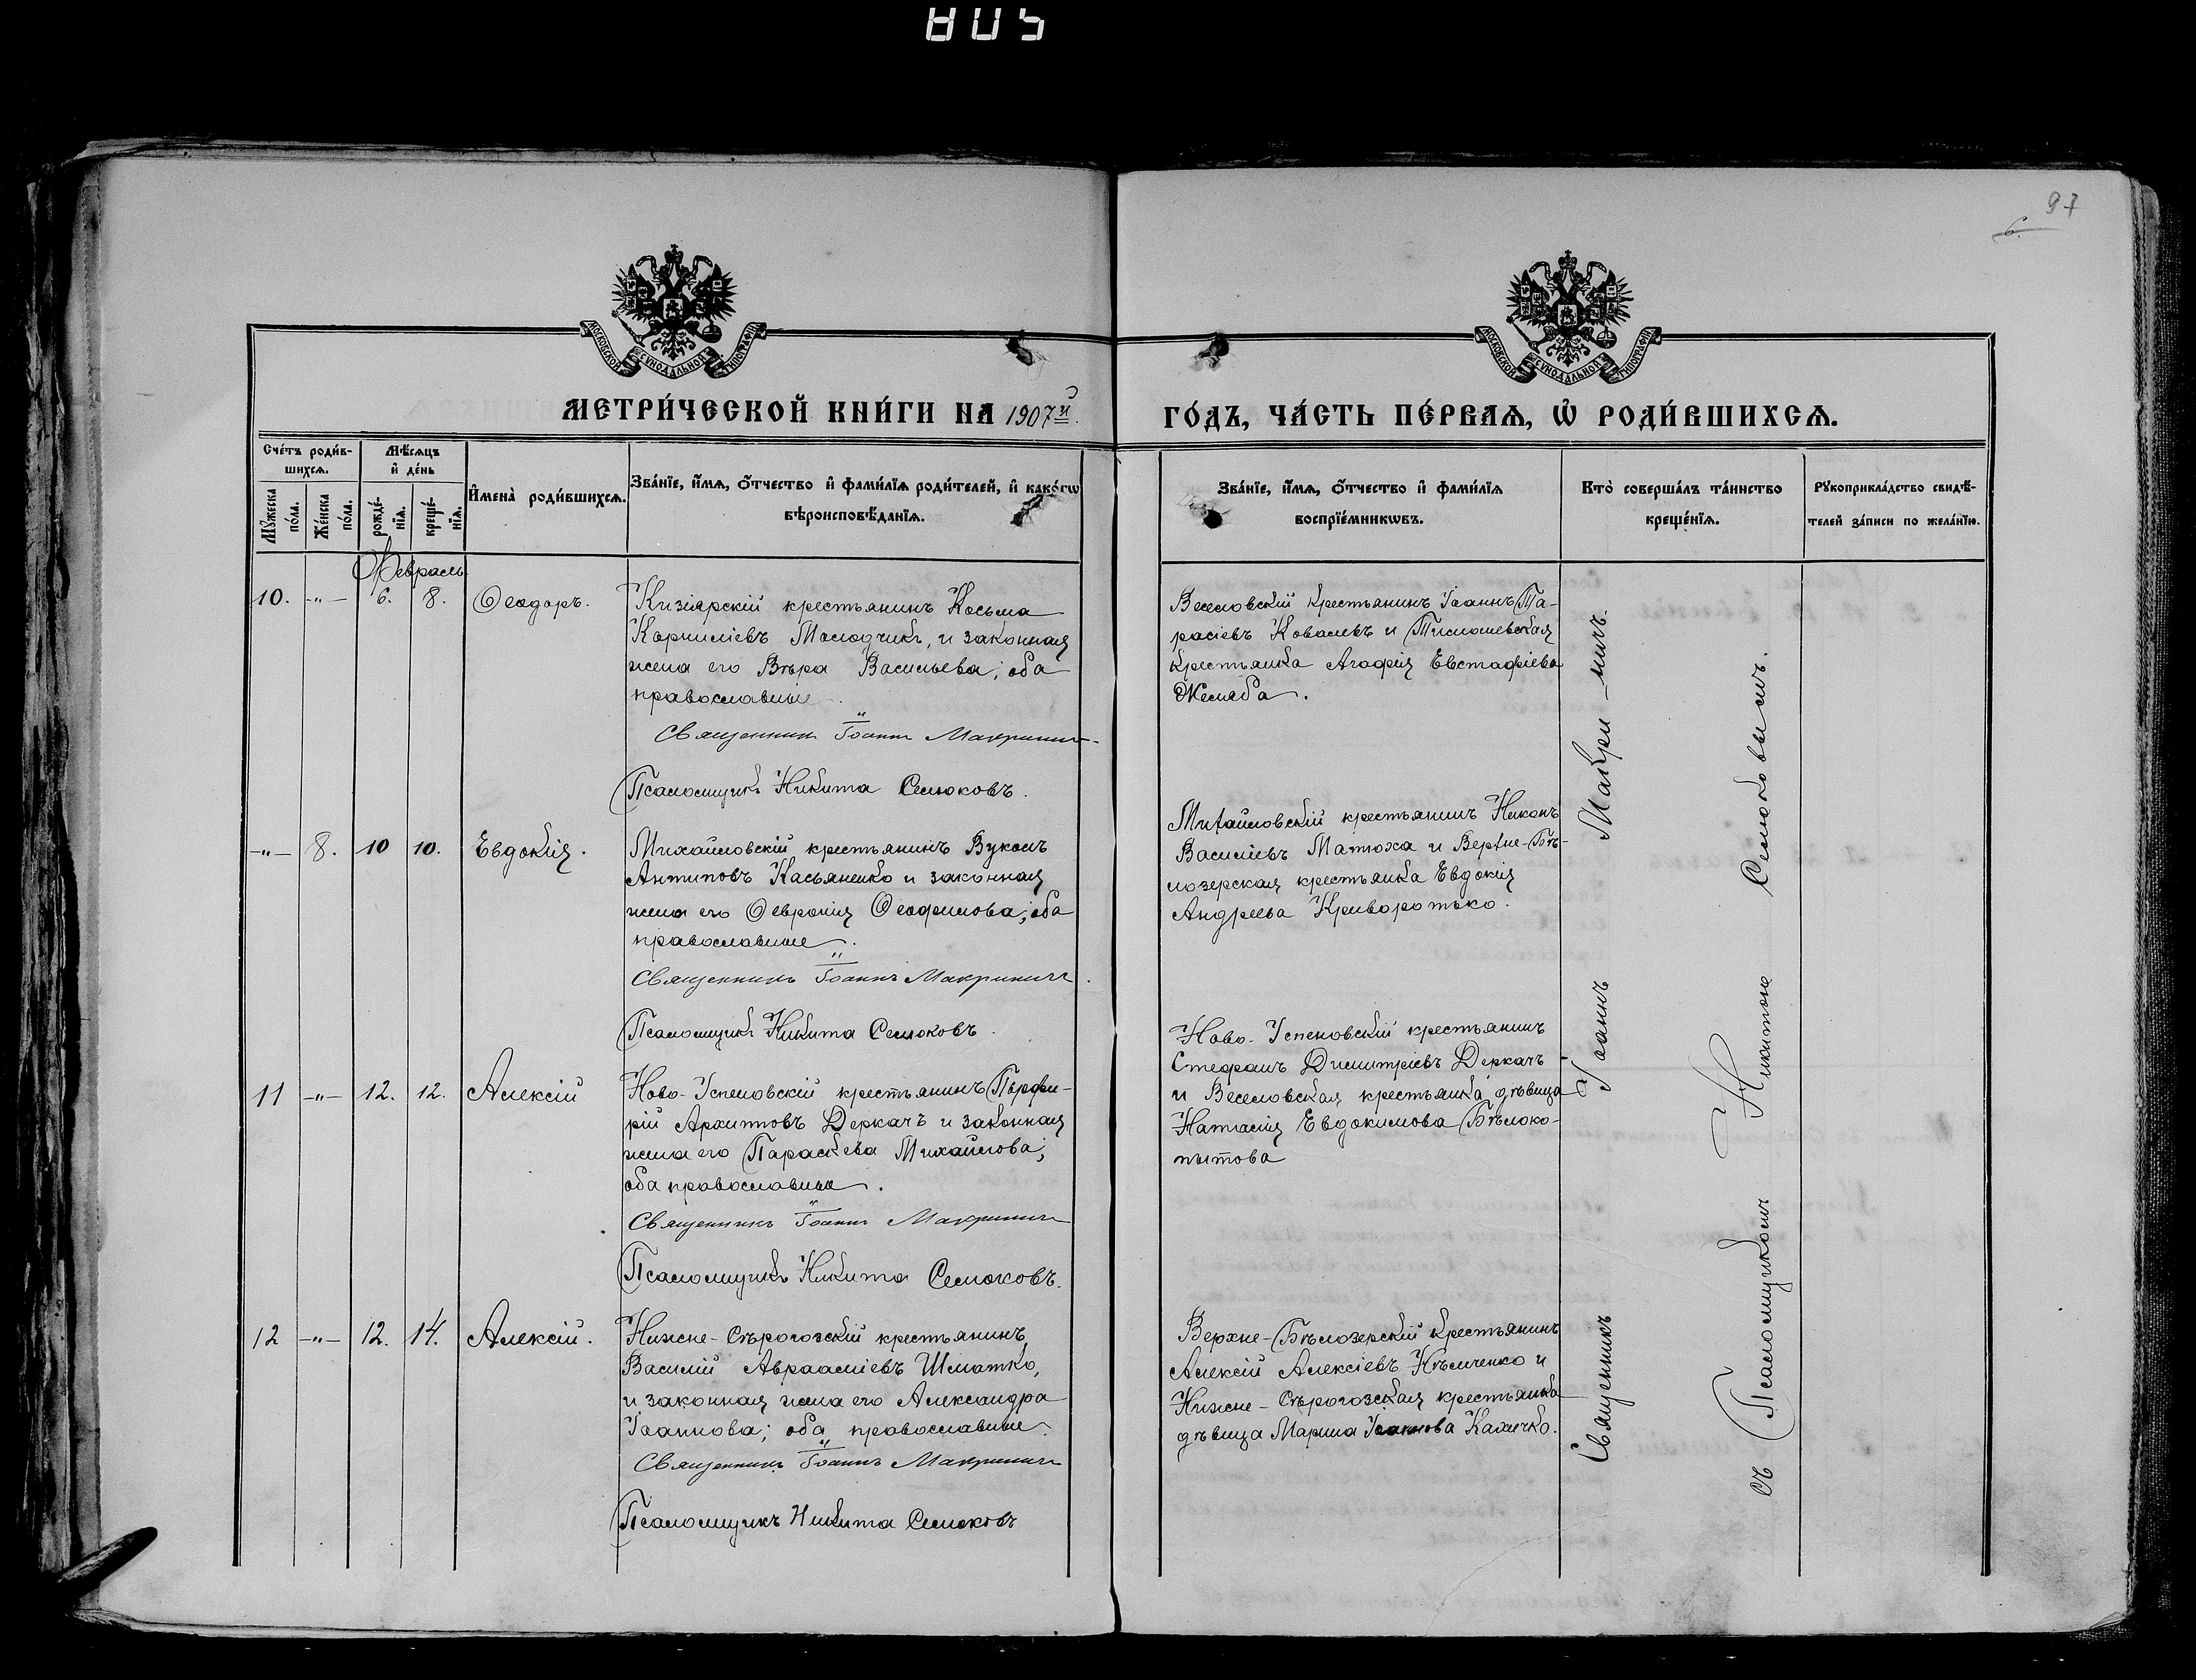 805
97
6.
МОСКОВСКОЙ СѴНОДАЛЬНОЙ ТИПОГРАФІИ
МОСКОВСКОЙ СѴНОДАЛЬНОЙ ТИПОГРАФІИ
МЕТРИ́ЧЕСКОЙ КНИ́ГИ НА 1907й.
ГО́ДЪ, ЧА́СТЬ ПЕ́РВАѦ, Ѡ҆ РОДИ́ВШИХСѦ.
Сче́тъ роди́в-
шихсѧ.
Мѹ́жеска по́ла.
Же́нска по́ла.
Мѣ́сѧцъ и҆ де́нь
рожде́-нїѧ.
креще́-нїѧ.
И҆мена̀ роди́вшихсѧ.
Зва́нїе, и҆́мѧ, ѻ҆́тчество и҆ фами́лїѧ роди́телей, и҆ како́гѡ
вѣроисповѣ́данїѧ.
Зва́нїе, и҆́мѧ, ѻ҆́тчество и҆ фами́лїѧ
воспрїе́мникѡвъ.
Кто̀ соверша́лъ та́инство
креще́нїѧ.
Рꙋкоприкла́дство свидѣ́-
телей за́писи по жела́нїю.
Февраль
10. -"- 6. 8. Ѳеодоръ.
Кизіярскій крестьянинъ Косьма
Корниліевъ Молодчикъ, и законная
жена его Вѣра Васильева; оба
православные.
Священникъ Іоаннъ Макриничъ
Псаломщикъ Никита Семоковъ.
Веселовскій крестьянинъ Іоаннъ Та-
расіевъ Ковалевъ и Тимошевская
крестьянка Агафія Евстафіева
Желяба.
-"- 8. 10 10. Евдокія.
Михайловскій крестьянинъ Вуколъ
Антиповъ Касьяненко и законная
жена его Ѳевронія Ѳеофилова; оба
православные.
Священникъ Іоаннъ Макриничъ
Псаломщикъ Никита Семоковъ.
Михайловскій крестьянинъ Никонъ
Василіевъ Матюха и Верхне-Бѣ-
лозерская крестьянка Евдокія
Андреева Криворотько.
11 -"- 12. 12. Алексій
Ново-Успеновскій крестьянинъ Порфи-
рій Архиповъ Деркачъ и законная
жена его Параскева Михайлова;
оба православные.
Священникъ Іоаннъ Макриничъ
Псаломщикъ Никита Семоковъ.
Ново-Успеновскій крестьянинъ
Стефанъ Димитріевъ Деркачъ
и Веселовская крестьянка дѣвица
Наталія Евдокимова Бѣлоко-
пытова
12 -"- 12. 14. Алексій.
Нижне-Сѣрогозскій крестьянинъ
Василій Авраамiевъ Шматко,
и законная жена его Александра
Іоаннова; оба православные.
Священникъ Іоаннъ Макриничъ
Псаломщикъ Никита Семоковъ
Верхне-Бѣлозерскій крестьянинъ
Алексій Алексіевъ Нѣмченко и
Нижне-Сѣрогозская крестьянка
дѣвица Марина Іоаннова Каличко.
Священникъ Іоаннъ Макри-ничъ.
съ Псаломщикомъ Никитою Семоковымъ.